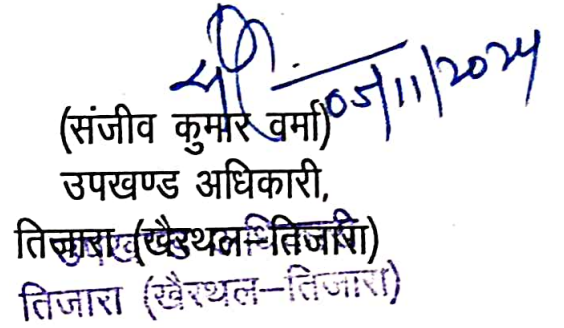 05/11/2024
(संजीव कुमार वर्मा)
उपखण्ड अधिकारी,
तिजारा (खैरथल–तिजारा)
तिजारा (खैरथल–तिजारा)